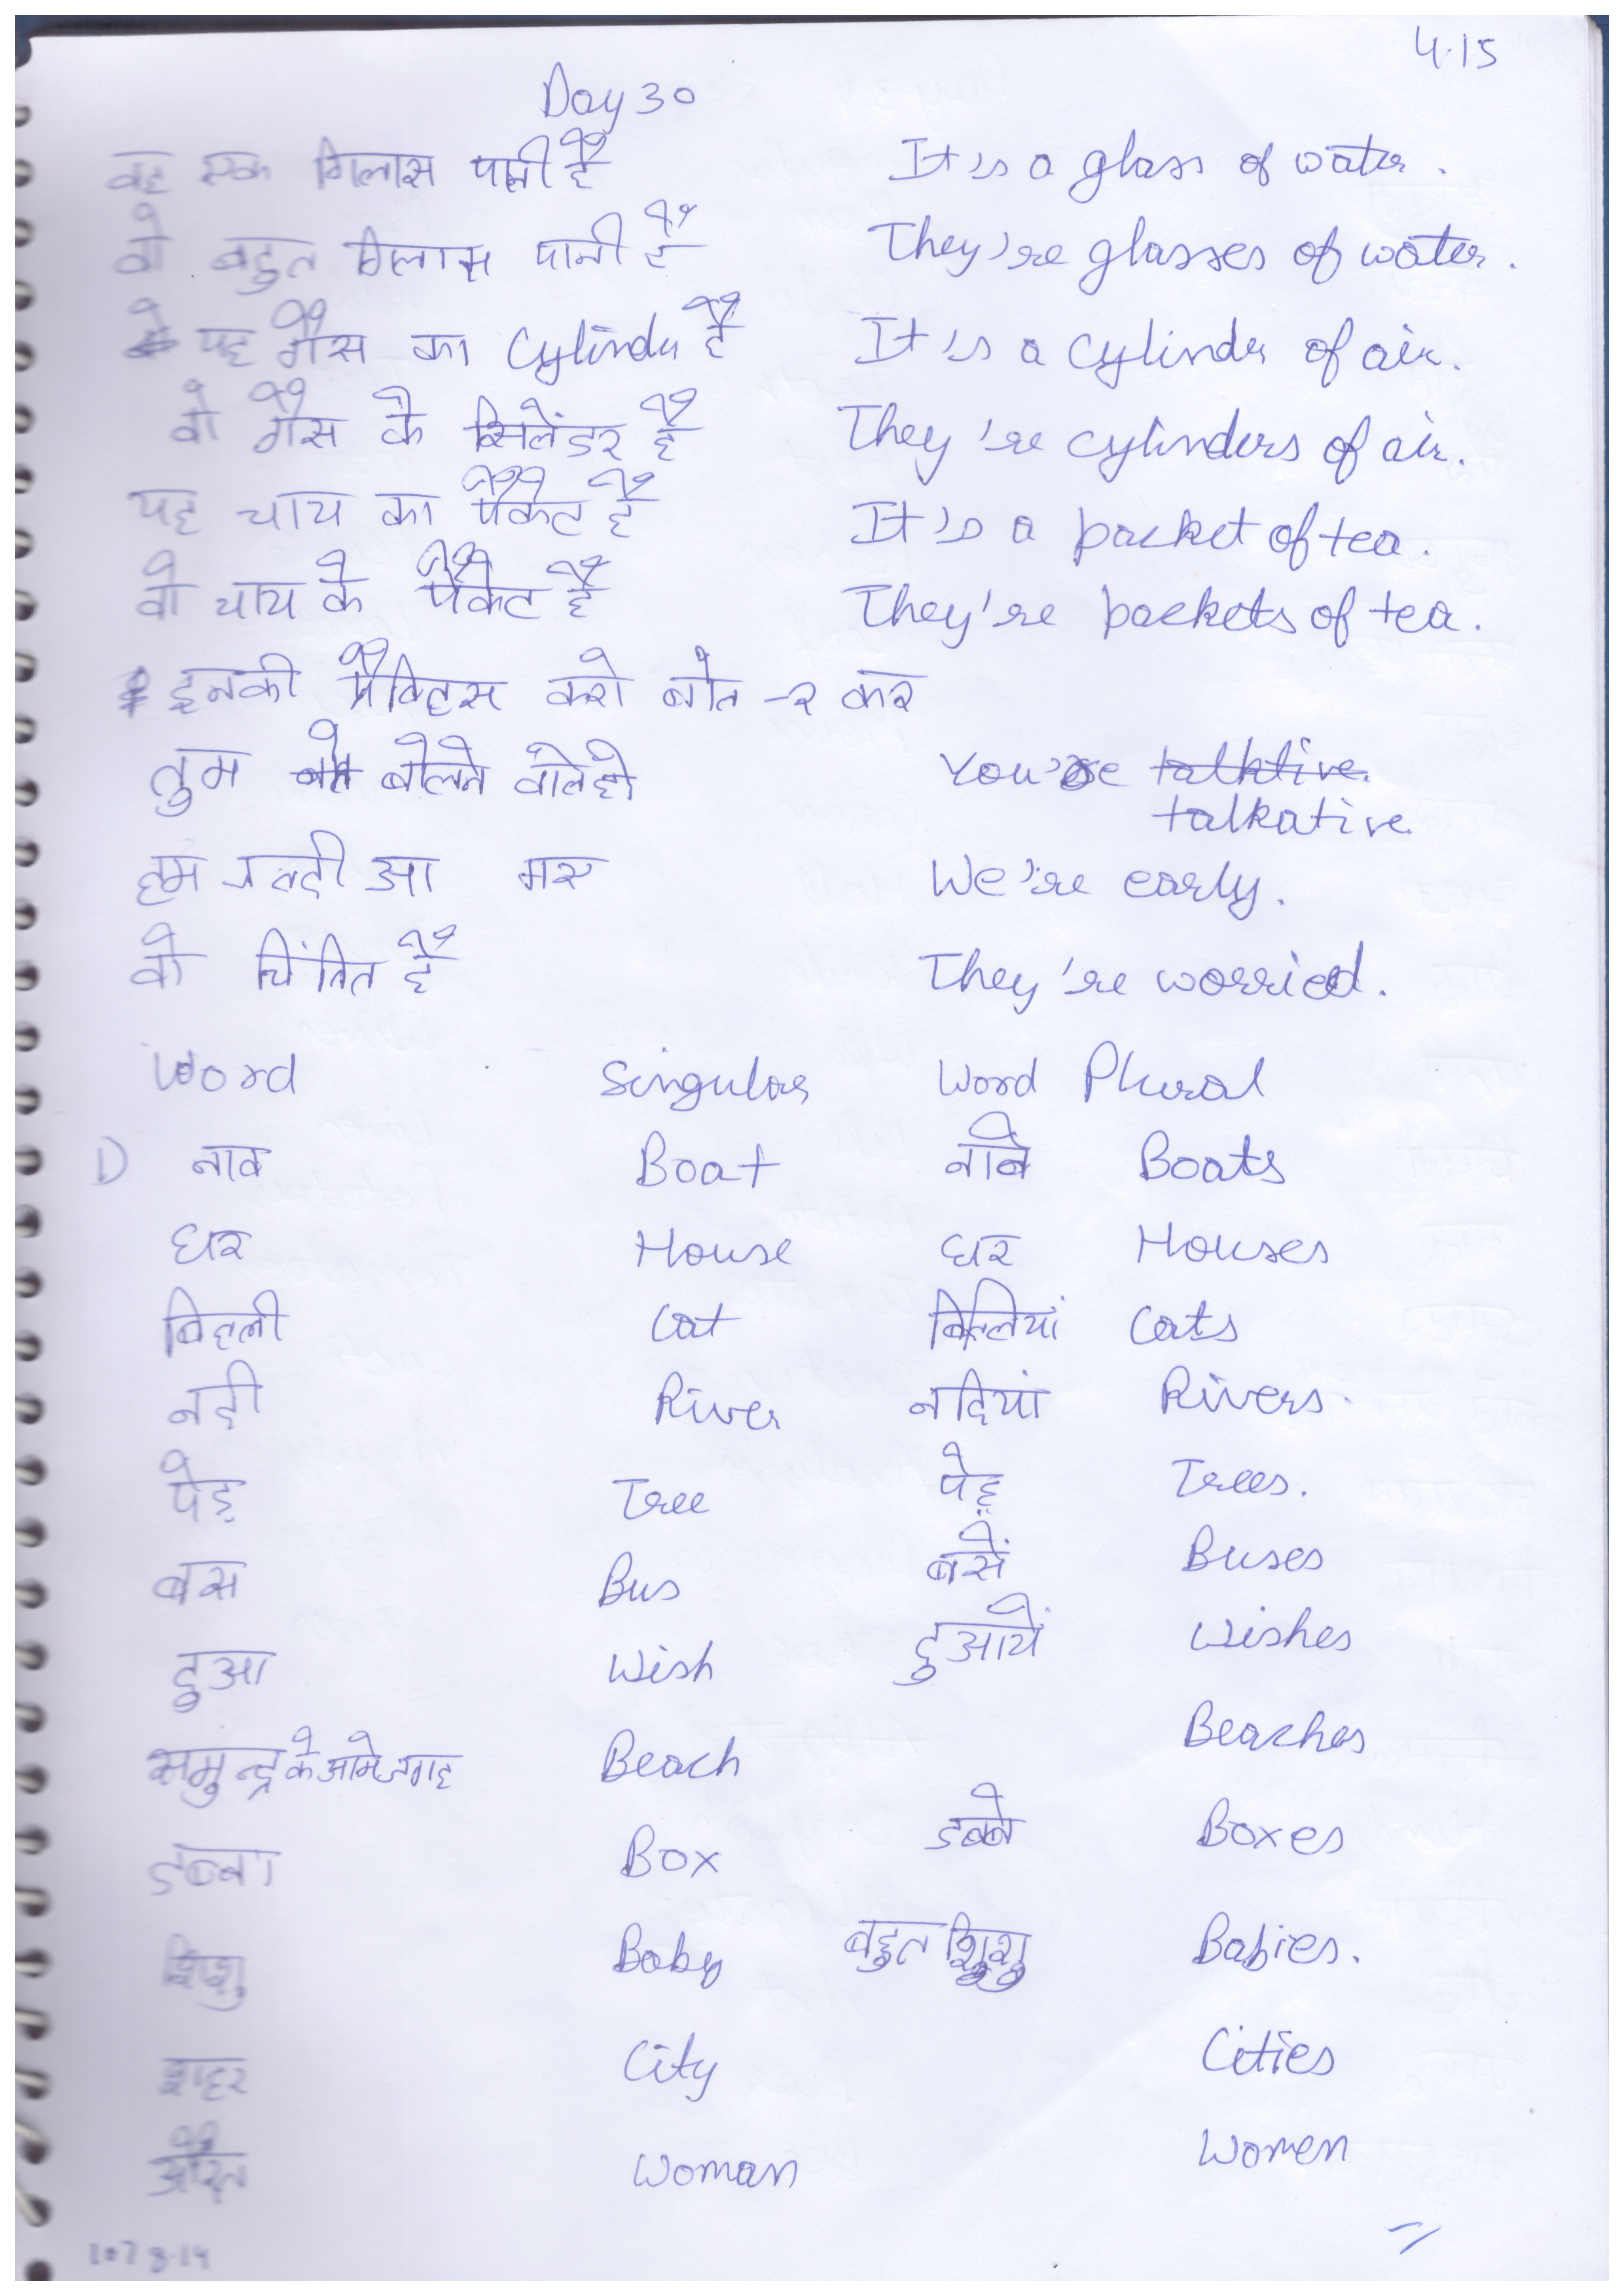 4.15
Day 30
वह एक गिलास पानी है It's a glass of water.
वो बहुत गिलास पानी है They're glasses of water.
यह गैस का Cylinder है It's a cylinder of air.
वो गैस के सिलेंडर है They're cylinders of air.
यह चाय का पैकेट है It's a packet of tea.
वो चाय के पैकेट है They're packets of tea.
इनकी प्रैक्टिस करो बोल -२ कर
तुम बोलने वाले हो You're talktive.
talkative.
हम जल्दी आ गए We're early.
वो चिंतित है They're worried.
Word Singular Word Plural
1) नाव Boat नावे Boats
घर House घर Houses
बिल्ली Cat बिल्लियां Cats
नदी River नदियां Rivers.
पेड़ Tree पेड़ Trees.
बस Bus बसें Buses
दुआ Wish दुआयें Wishes
समुन्द्र के आगे जगह Beach Beaches
डब्बा Box डब्बे Boxes
शिशु Baby बहुत शिशु Babies.
शहर City Cities
औरत Woman Women